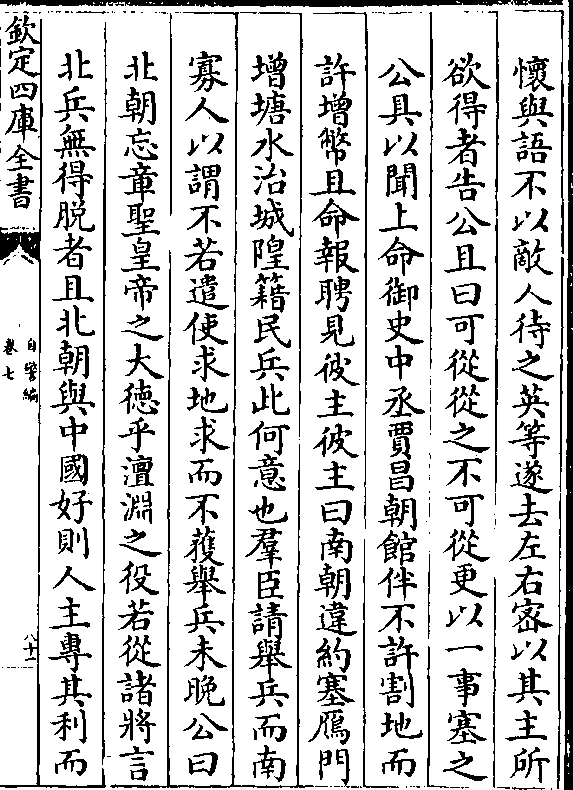 懷與語不以敵人待之英等遂去左右密以其主所
欲得者告公且曰可從從之不可從更以一事塞之
公具以聞上命御史中丞賈昌朝館伴不許割地而
許增幣且命報聘見彼主彼主曰南朝違約塞鴈門
增塘水治城隍籍民兵此何意也羣臣請舉兵而南
寡人以謂不若遣使求地求而不獲舉兵未晚公曰
北朝忘章聖皇帝之大德乎澶淵之役若從諸將言
北兵無得脱者且北朝與中國好則人主專其利而
欽定四庫全書
自警編
卷七
八十一